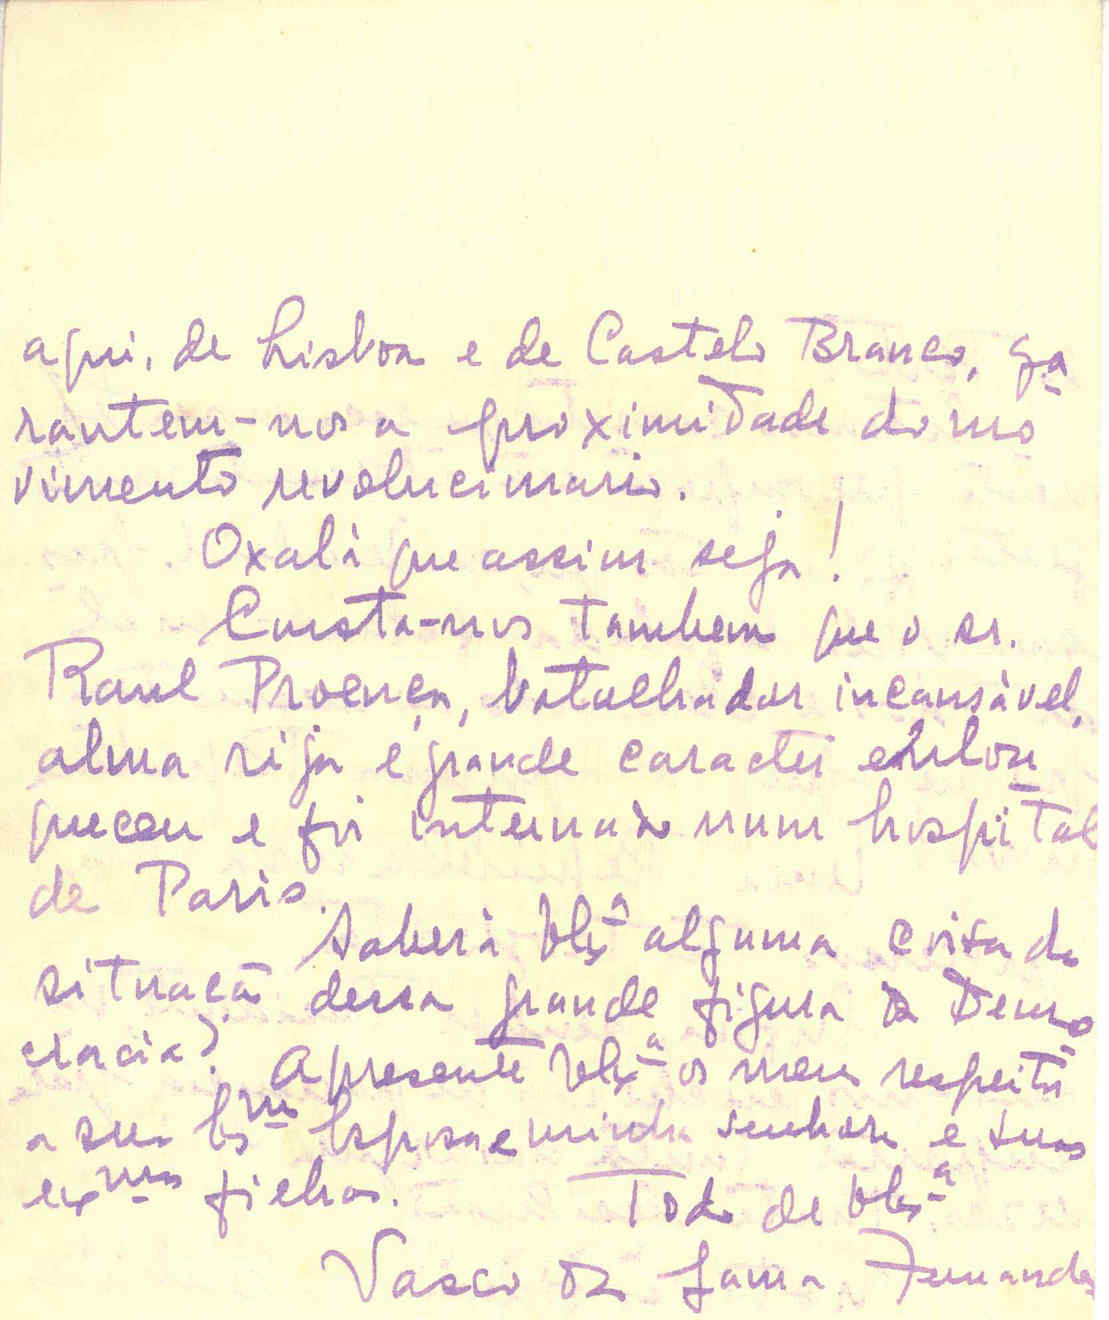 aqui, de Lisboa e de Castelo Branco, ga
rantem-nos a proximidade do mo
vimento revolucionario.
Oxalà que assim seja!
Consta-nos tambem que o sr.
Raul Proença, batalhador incansàvel,
alma rija e grande caracter enlou
queceu e foi internado num hospital
de Paris.
Saberà VEx.ª alguma coisa da
situação dessa grande figura da Demo
cracia?
Apresente VEx.ª os meus respeitos
a sua Ex.ma Esposa e minha senhora e suas
ex.mas filhas.
Todo de VEx.ª
Vasco da Gama Fernandes